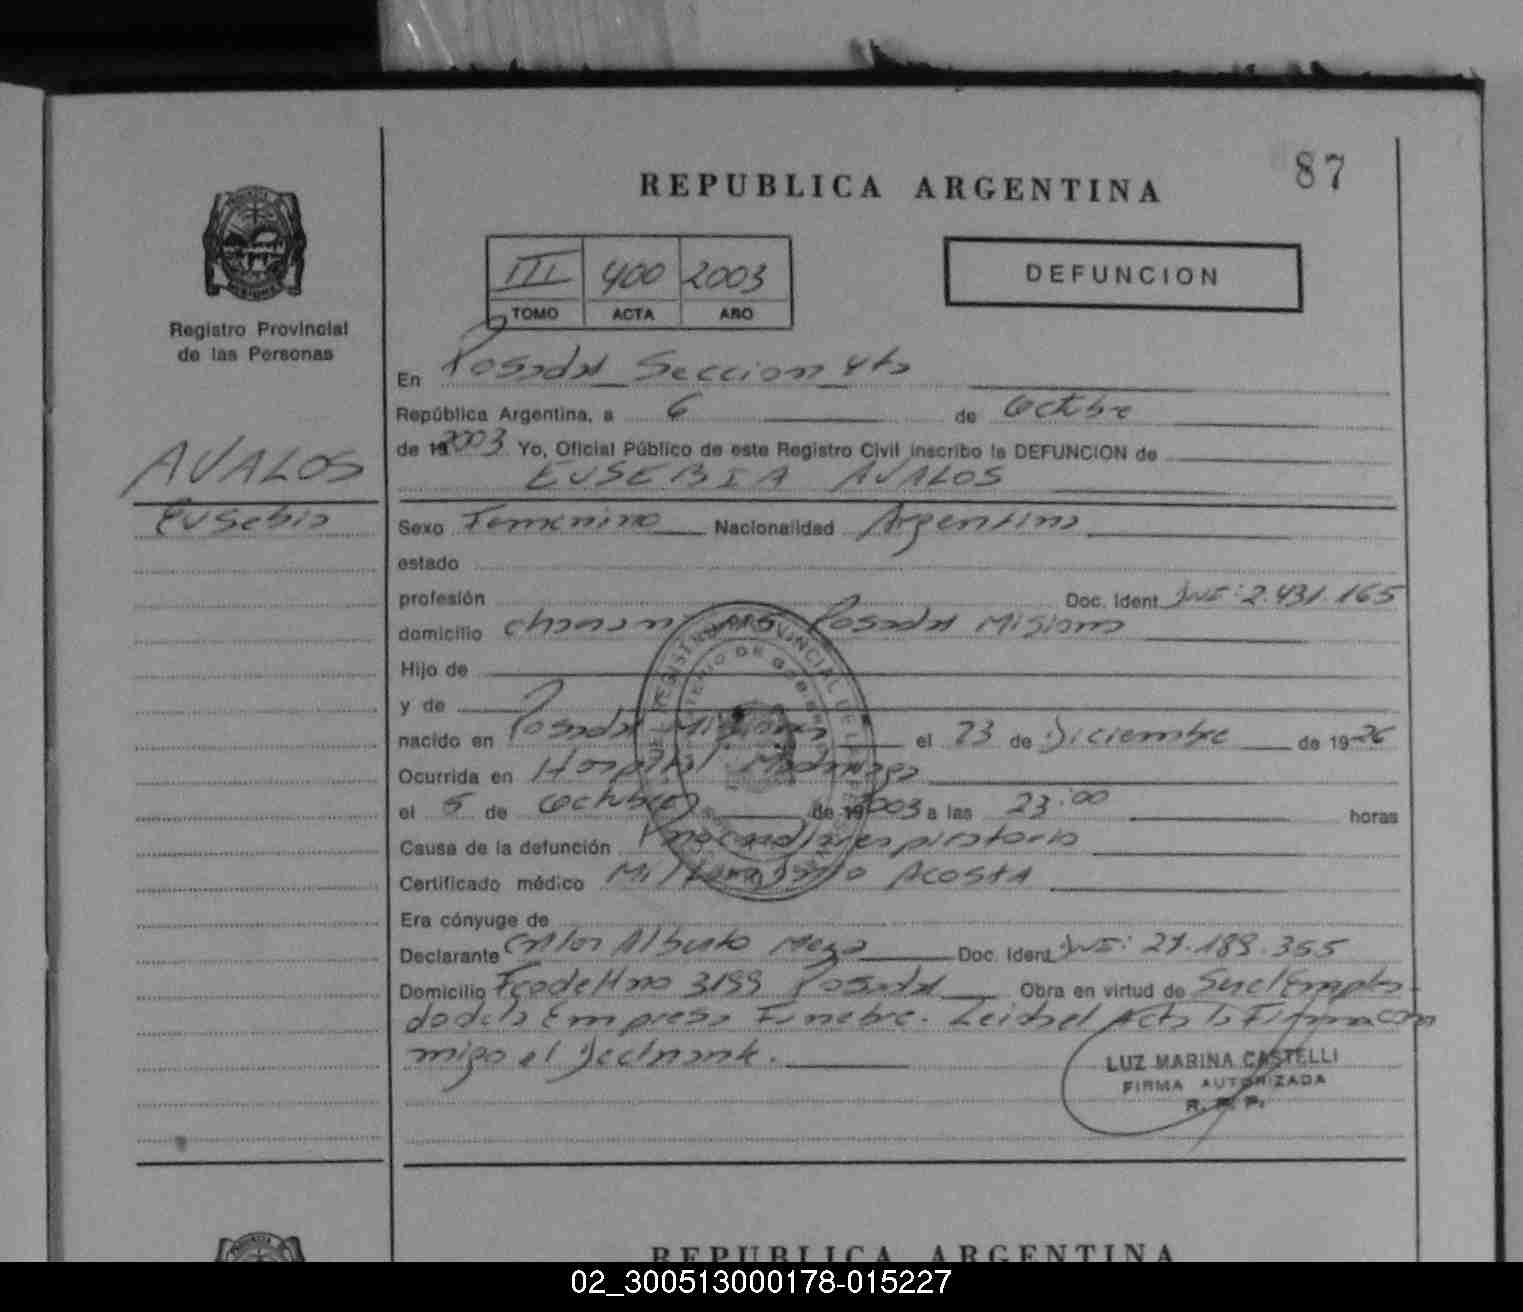 87
REPUBLICA ARGENTINA
III 400 2003
TOMO ACTA AÑO
DEFUNCION
Registro Provincial
de las Personas
En Posadas Seccion 4ta
República Argentina, a 6 de Octubre
de 19 2003 Yo, Oficial Público de este Registro Civil inscribo la DEFUNCION de
EUSEBIA AVALOS
AVALOS
Eusebia
Sexo Femenino Nacionalidad Argentina
estado
profesión Doc. Ident. DNI: 2.431.165
domicilio Posadas Misiones
Hijo de
y de
nacido en Posadas Misiones el 23 de Diciembre de 1926
Ocurrida en Hospital Madariaga
el 5 de Octubre de 19 2003 a las 23:00 horas
Causa de la defunción
Certificado médico Acosta
Era cónyuge de
Declarante Carlos Alberto Meza Doc. Ident. DNI: 27.189.355
Domicilio 3199 Posadas Obra en virtud de Ser el Emplea-
do de la Empresa Funebre. Leida el Acta la Firma con
migo el Declarante.
LUZ MARINA CASTELLI
FIRMA AUTORIZADA
R. P. P.
REPUBLICA ARGENTINA
02_300513000178-015227